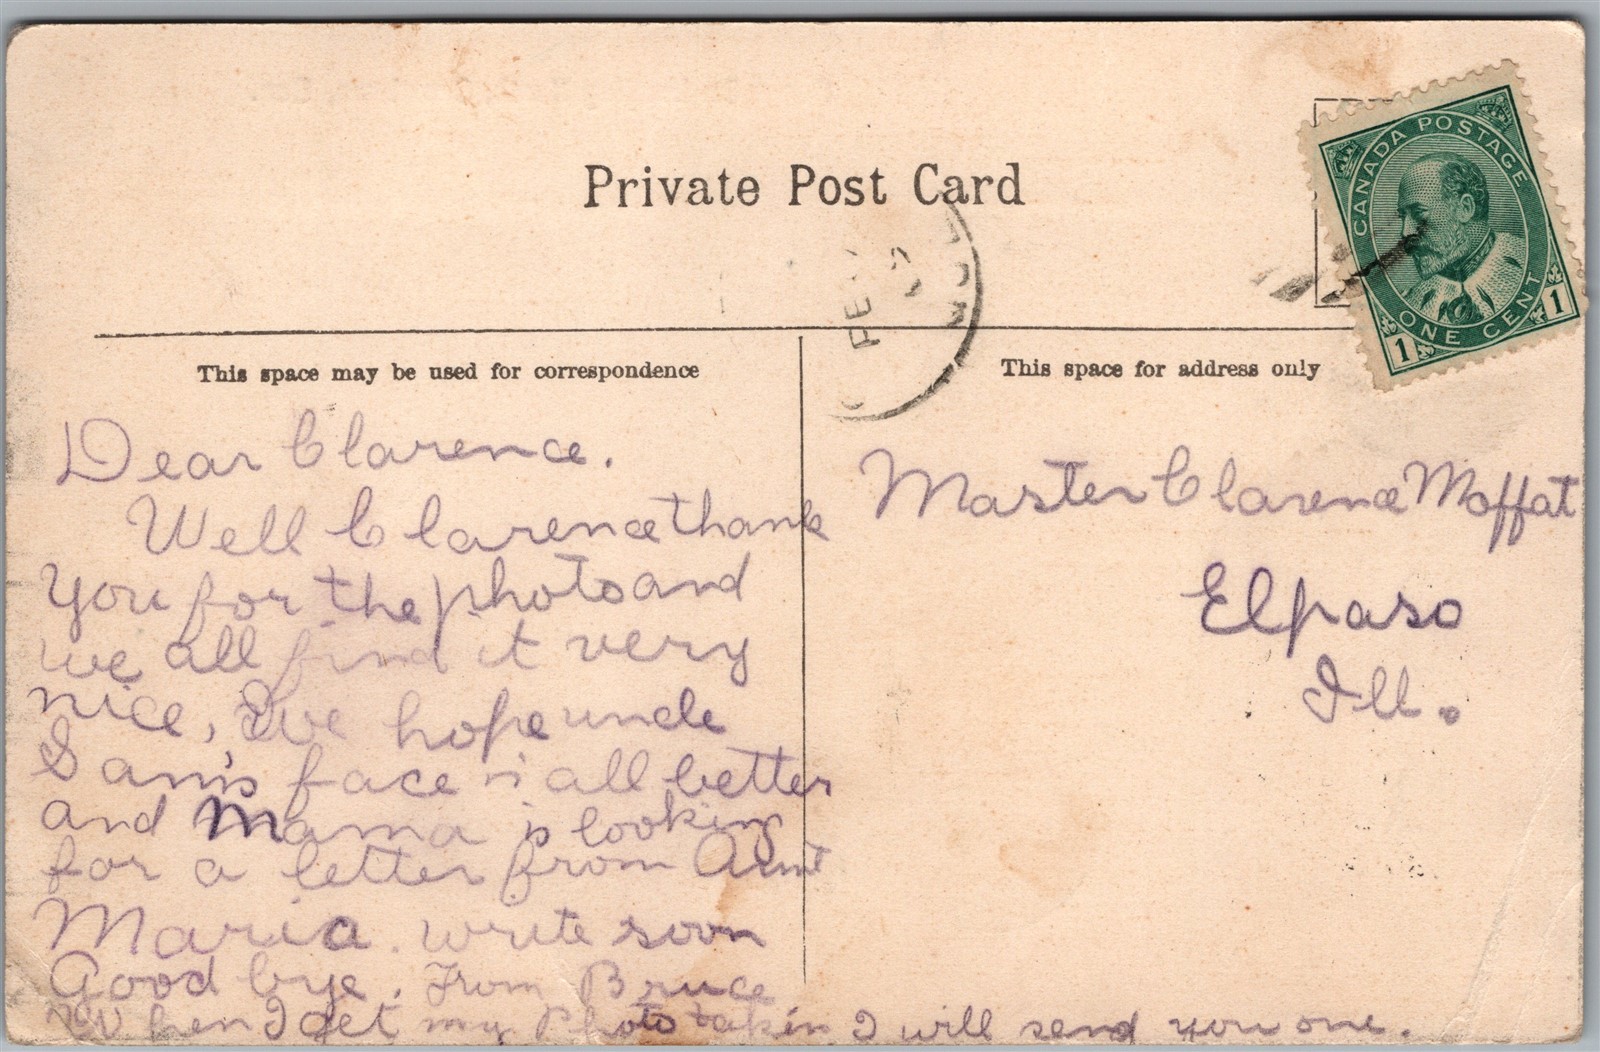 Private Post Card
CANADA POSTAGE
ONE CENT
1 1
FE
This space may be used for correspondence
This space for address only
Dear Clarence.
Well Clarence thank
you for the photo and
we all find it very
nice, We hope uncle
Sam's face is all better
and Mama is looking
for a letter from Aunt
Maria. write soon
Good bye. From Bruce
When I get my Photo takin I will send you one.
Master Clarence Moffat
Elpaso
Ill.